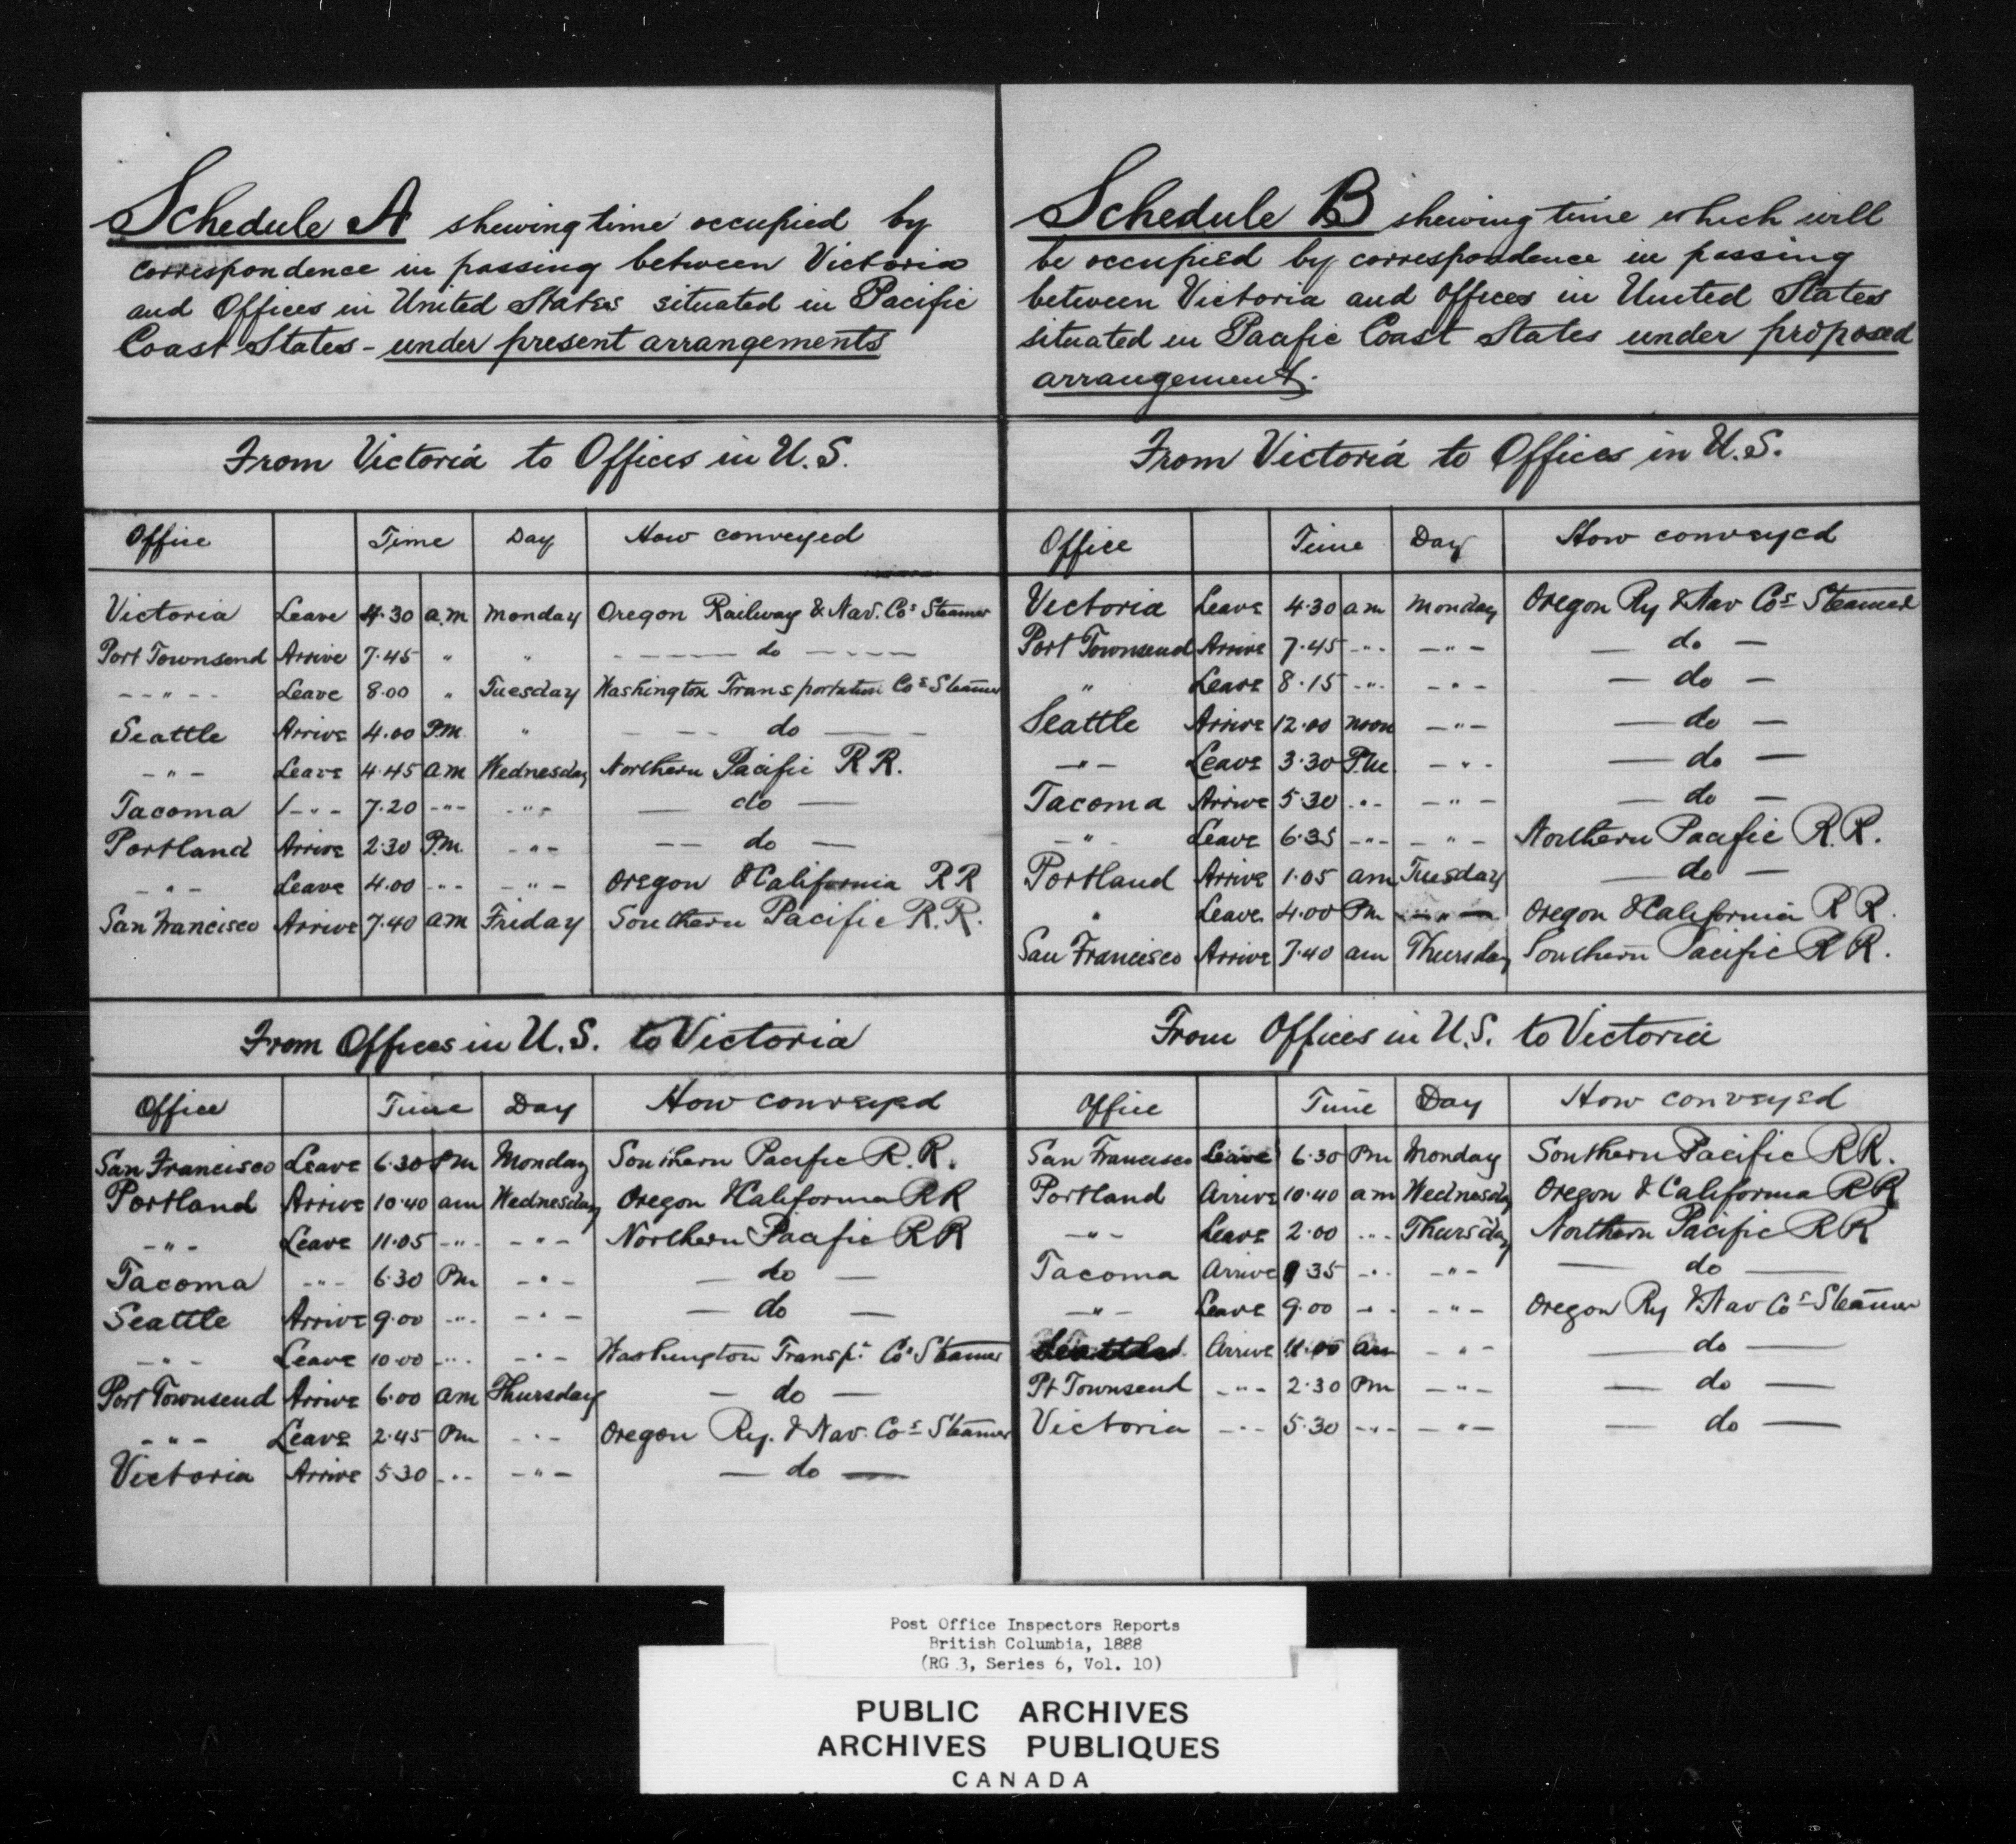 Schedule A shewing time occupied by
correspondence in passing between Victoria
and Offices in United States situated in Pacific
Coast States - under present arrangements
From Victoria to Offices in U.S.
Office Time Day How conveyed
Victoria Leave 4.30 a.m Monday Oregon Railway & Nav. Cos Steamer
Port Townsend Arrive 7.45 " " - do -
" Leave 8.00 " Tuesday Washington Transportation Cos Steamer
Seattle Arrive 4.00 P.M. " - do -
" Leave 4.45 a.m Wednesday Northern Pacific R R.
Tacoma " 7.20 " " - do -
Portland Arrive 2.30 P.M " - do -
" Leave 4.00 " " Oregon & California R R
San Francisco Arrive 7.40 a.m Friday Southern Pacific R. R.
From Offices in U.S. to Victoria
Office Time Day How conveyed
San Francisco Leave 6.30 Pm Monday Southern Pacific R. R.
Portland Arrive 10.40 am Wednesday Oregon & California RR
" Leave 11.05 " " Northern Pacific RR
Tacoma " 6.30 Pm " - do -
Seattle Arrive 9.00 " " - do -
" Leave 10.00 " " Washington Transpt. Cos Steamer
Port Townsend Arrive 6.00 am Thursday - do -
" Leave 2.45 Pm " Oregon Ry. & Nav. Cos Steamer
Victoria Arrive 5.30 " " - do -
Schedule B shewing time which will
be occupied by correspondence in passing
between Victoria and offices in United States
situated in Pacific Coast States under proposed
arrangement.
From Victoria to Offices in U.S.
Office Time Day How conveyed
Victoria Leave 4.30 am Monday Oregon Ry & Nav Cos Steamer
Port Townsend Arrive 7.45 " " - do -
" Leave 8.15 " " - do -
Seattle Arrive 12.00 noon " - do -
" Leave 3.30 P.M. " - do -
Tacoma Arrive 5.30 " " - do -
" Leave 6.35 " " Northern Pacific R.R.
Portland Arrive 1.05 am Tuesday - do -
" Leave 4.00 Pm " Oregon & California R R.
San Francisco Arrive 7.40 am Thursday Southern Pacific R R.
From Offices in U.S. to Victoria
Office Time Day How conveyed
San Francisco Leave 6.30 Pm Monday Southern Pacific RR.
Portland Arrive 10.40 am Wednesday Oregon & California RR
" Leave 2.00 " Thursday Northern Pacific RR
Tacoma Arrive 35 " " - do -
" Leave 9.00 " " Oregon Ry & Nav Cos Steamer
Seattle Arrive 11.05 am " - do -
Pt Townsend " 2.30 Pm " - do -
Victoria " 5.30 " " - do -
Post Office Inspectors Reports
British Columbia, 1888
(RG 3, Series 6, Vol. 10)
PUBLIC ARCHIVES
ARCHIVES PUBLIQUES
CANADA